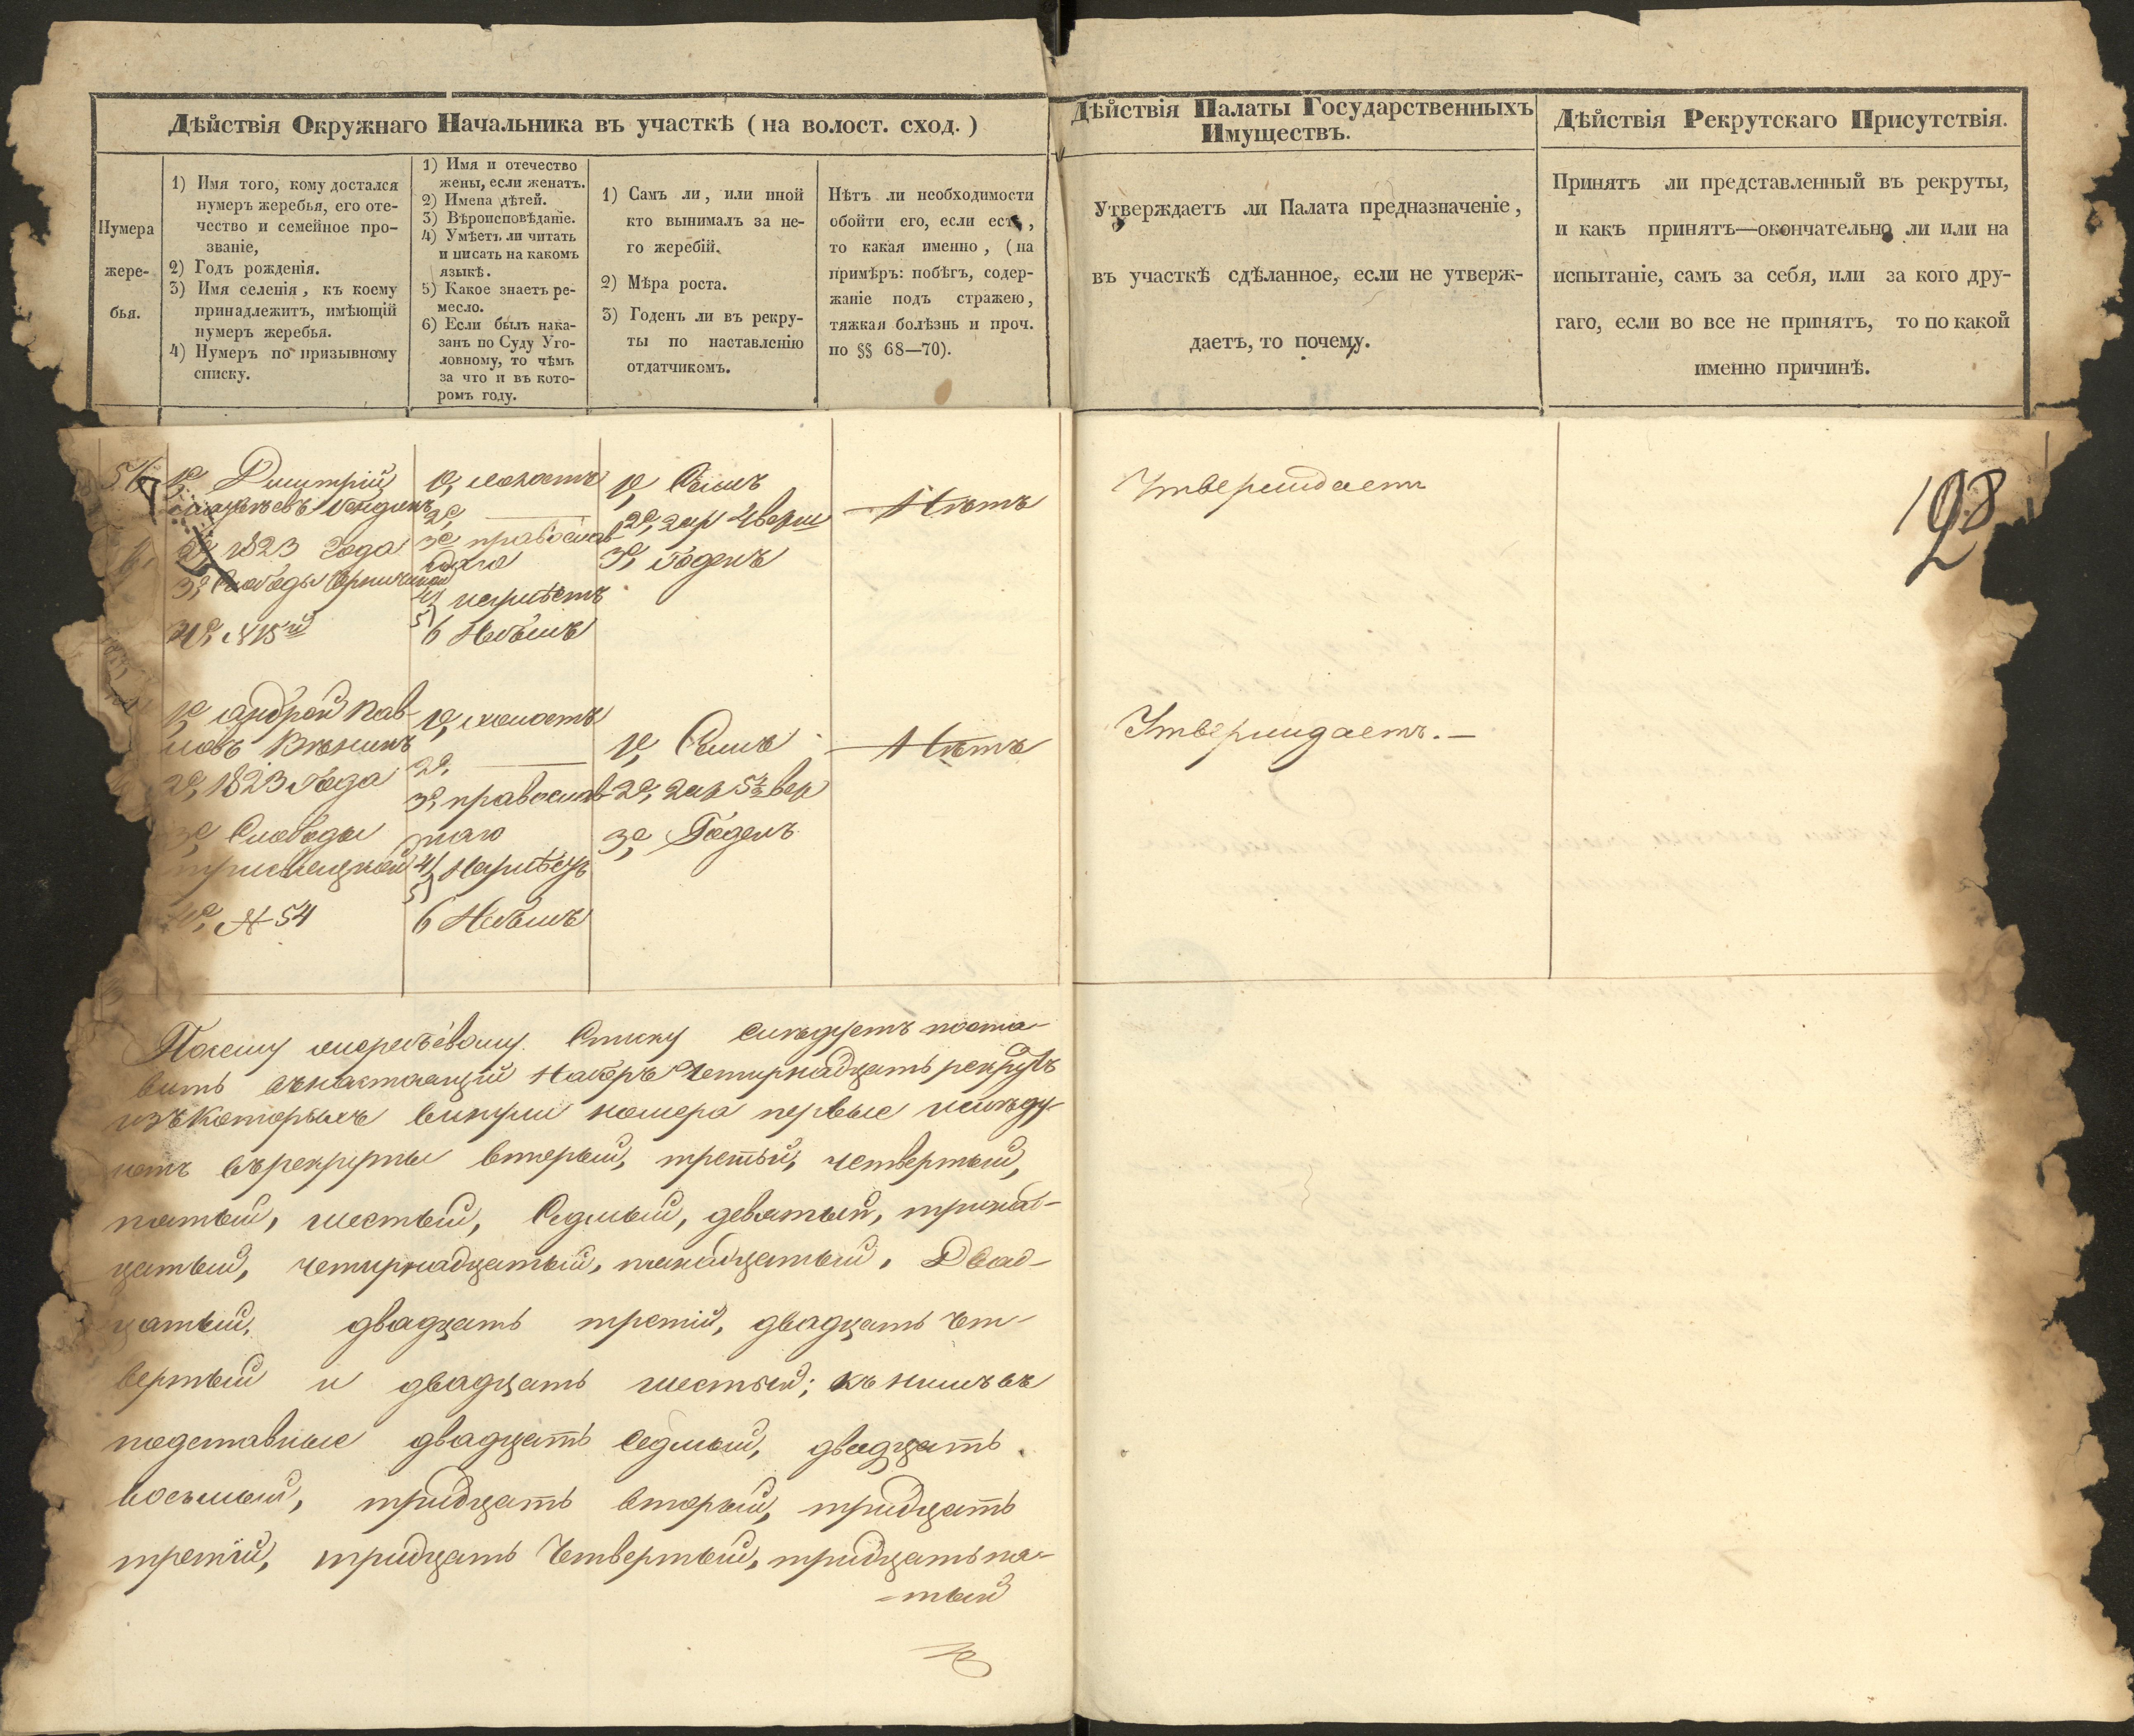 Дѣйствія Окружнаго Начальника въ участкѣ (на волост. сход.)
Нумера
жере-
бья.
1) Имя того, кому достался
нумеръ жеребья, его оте-
чество и семейное про-
званіе,
2) Годъ рожденія.
3) Имя селенія, къ коему
принадлежитъ, имѣющій
нумеръ жеребья.
4) Нумеръ по призывному
списку.
1) Имя и отечество
жены, если женатъ.
2) Имена дѣтей.
3) Вѣроисповѣданіе.
4) Умѣетъ ли читать
и писать на какомъ
языкѣ.
5) Какое знаетъ ре-
месло.
6) Если былъ нака-
занъ по Суду Уго-
ловному, то чѣмъ
за что и въ кото-
ромъ году.
1) Самъ ли, или иной
кто вынималъ за не-
го жеребій.
2) Мѣра роста.
3) Годенъ ли въ рекру-
ты по наставленію
отдатчикомъ.
Нѣтъ ли необходимости
обойти его, если есть,
то какая именно, (на
примѣръ: побѣгъ, содер-
жаніе подъ стражею,
тяжкая болѣзнь и проч.
по §§ 68—70).
1е Дмитрій
2е 1823 года
3е Слободы
4е, №15й
1е, холостъ
2е,
3е православ-
наго
4) неумѣетъ
5)
6 Небылъ
1е,
2е, 2ар 4верш
3е, Годенъ
Нѣтъ
1е Андрей Пав-
ловъ
2е, 1823 Года
3е Слободы
4е, №54
1е, холостъ
2е,
3е, православ-
наго
4) Неумѣетъ
5)
6 Небылъ
1е, Самъ
2е, 2ар 5½вер
3е Годенъ
Нѣтъ
По сему жеребьёвому Списку Слѣдуетъ поста-
вить въ настоящій Наборъ Четырнадцать рекрутъ
изъ Которыхъ номера первые
въ рекруты вторый, третьій, четвертый,
пятый, шестый, Седмый, девятый, тринад-
цатый, четырнадцатый, пятнадцатый, Двад-
цатый, двадцать третій, двадцать Чет-
вертый и двадцать шестый; къ нимъ въ
подставные двадцать Седмый, двадцать
восьмый, тридцать вторый, тридцать
третій, тридцать Четвертый, тридцать пя-
=тый
Дѣйствія Палаты Государственныхъ
Имуществъ.
Утверждаетъ ли Палата предназначеніе,
въ участкѣ сдѣланное, если не утверж-
даетъ, то почему.
Утверждаетъ
Утверждаетъ.—
Дѣйствія Рекрутскаго Присутствія.
Принятъ ли представленный въ рекруты,
и какъ принятъ—окончательно ли или на
испытаніе, самъ за себя, или за кого дру-
гаго, если во все не принятъ, то по какой
именно причинѣ.